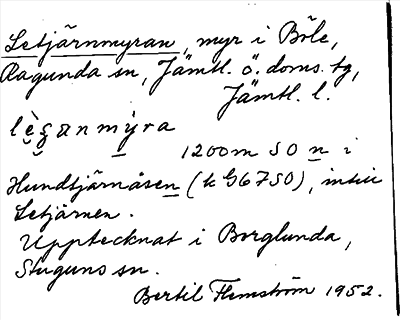 Letjärnmyran, myr i Böle,
Ragunda sn, Jämtl. ö. doms. tg,
Jämtl. l.
1200 m SO n i
Hundtjärnåsen (k G6750), intill
Letjärnen.
Upptecknat i Borglunda,
Stuguns sn.
Bertil Flemström 1952.